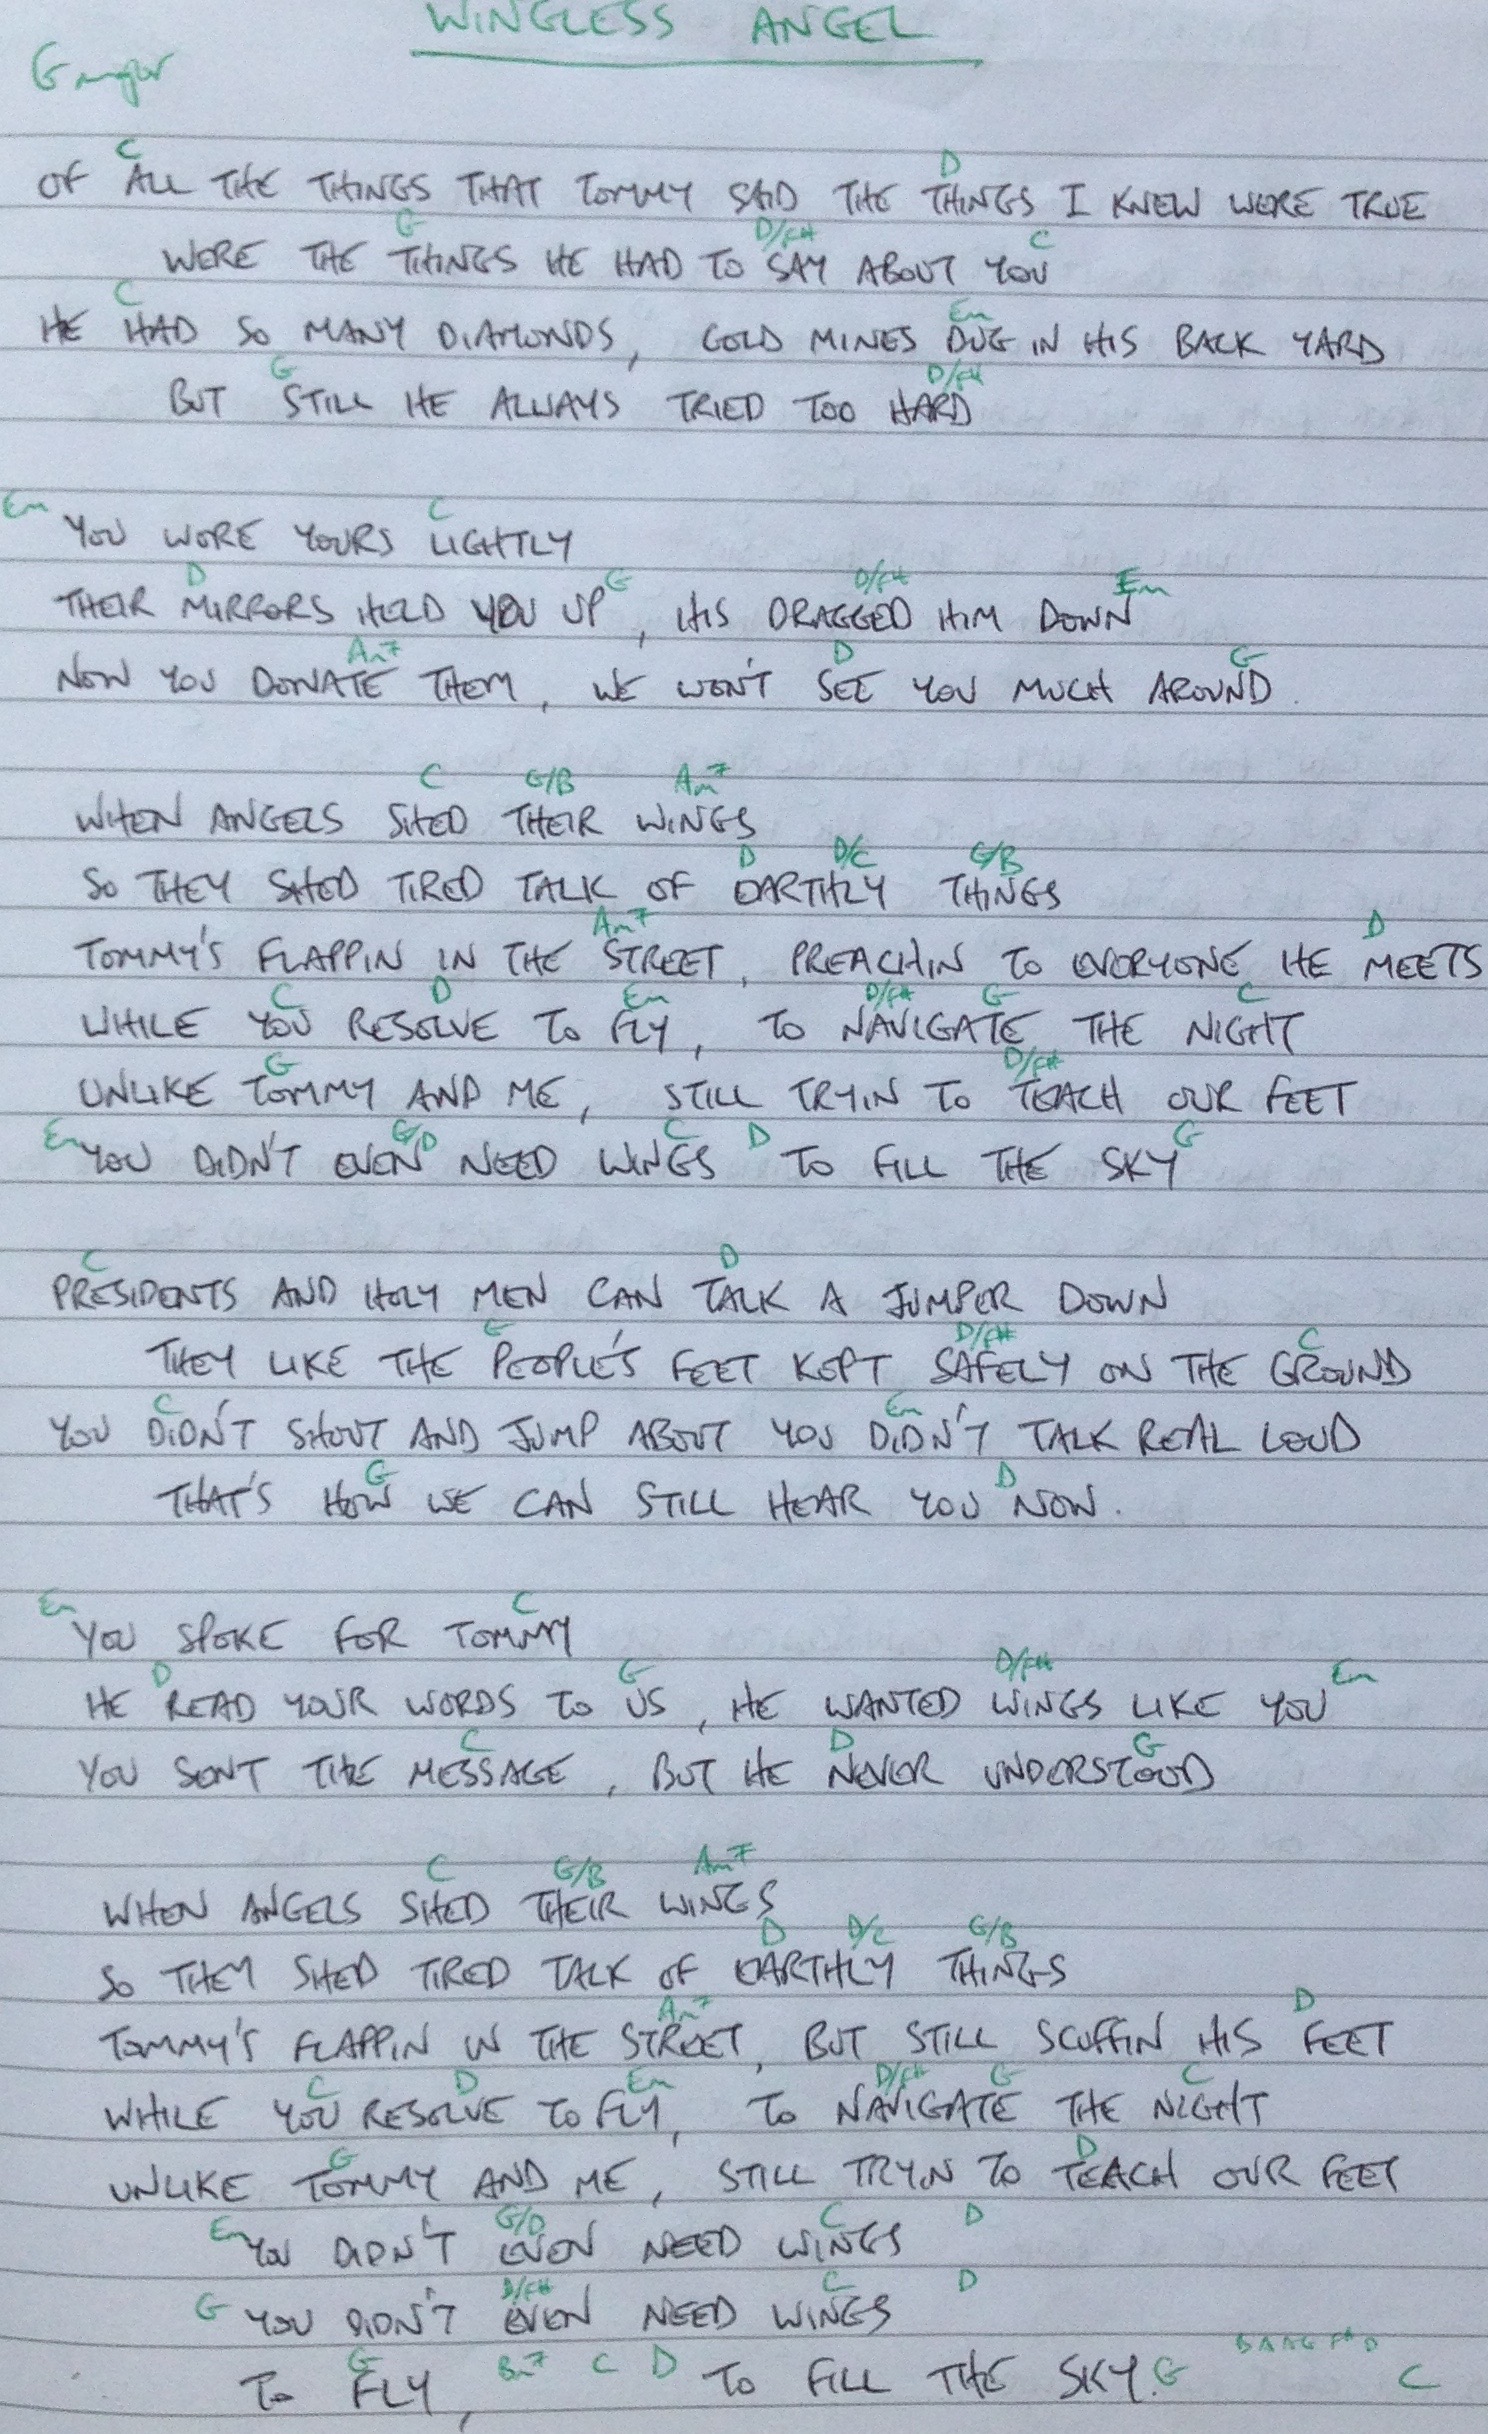 WINGLESS ANGEL
G major
C D
OF ALL THE THINGS THAT TOMMY SAID THE THINGS I KNEW WERE TRUE
G D/F# C
WERE THE THINGS HE HAD TO SAY ABOUT YOU
C Em
HE HAD SO MANY DIAMONDS, GOLD MINES DUG IN HIS BACK YARD
G D/F#
BUT STILL HE ALWAYS TRIED TOO HARD
Em C
YOU WORE YOURS LIGHTLY
D G D/F# Em
THEIR MIRRORS HELD YOU UP, HIS DRAGGED HIM DOWN
Am7 D G
NOW YOU DONATE THEM, WE WON'T SEE YOU MUCH AROUND.
C G/B Am7
WHEN ANGELS SHED THEIR WINGS
D D/C G/B
SO THEY SHED TIRED TALK OF EARTHLY THINGS
Am7 D
TOMMY'S FLAPPIN IN THE STREET, PREACHIN TO EVERYONE HE MEETS
C D Em D/F# G C
WHILE YOU RESOLVE TO FLY, TO NAVIGATE THE NIGHT
G D/F#
UNLIKE TOMMY AND ME, STILL TRYIN TO TEACH OUR FEET
Em G/D C D G
YOU DIDN'T EVEN NEED WINGS TO FILL THE SKY
C D
PRESIDENTS AND HOLY MEN CAN TALK A JUMPER DOWN
G D/F# C
THEY LIKE THE PEOPLE'S FEET KEPT SAFELY ON THE GROUND
C Em
YOU DIDN'T SHOUT AND JUMP ABOUT YOU DIDN'T TALK REAL LOUD
G D
THAT'S HOW WE CAN STILL HEAR YOU NOW.
Em C
YOU SPOKE FOR TOMMY
D G D/F# Em
HE READ YOUR WORDS TO US, HE WANTED WINGS LIKE YOU
C D G
YOU SENT THE MESSAGE, BUT HE NEVER UNDERSTOOD
C G/B Am7
WHEN ANGELS SHED THEIR WINGS
D D/C G/B
SO THEY SHED TIRED TALK OF EARTHLY THINGS
Am7 D
TOMMY'S FLAPPIN IN THE STREET, BUT STILL SCUFFIN HIS FEET
C D Em D/F# G C
WHILE YOU RESOLVE TO FLY, TO NAVIGATE THE NIGHT
G D
UNLIKE TOMMY AND ME, STILL TRYIN TO TEACH OUR FEET
Em G/D C D
YOU DIDN'T EVEN NEED WINGS
G D/F# C D
YOU DIDN'T EVEN NEED WINGS
G Bm7 C D G B A A G F# D C
TO FLY, TO FILL THE SKY.